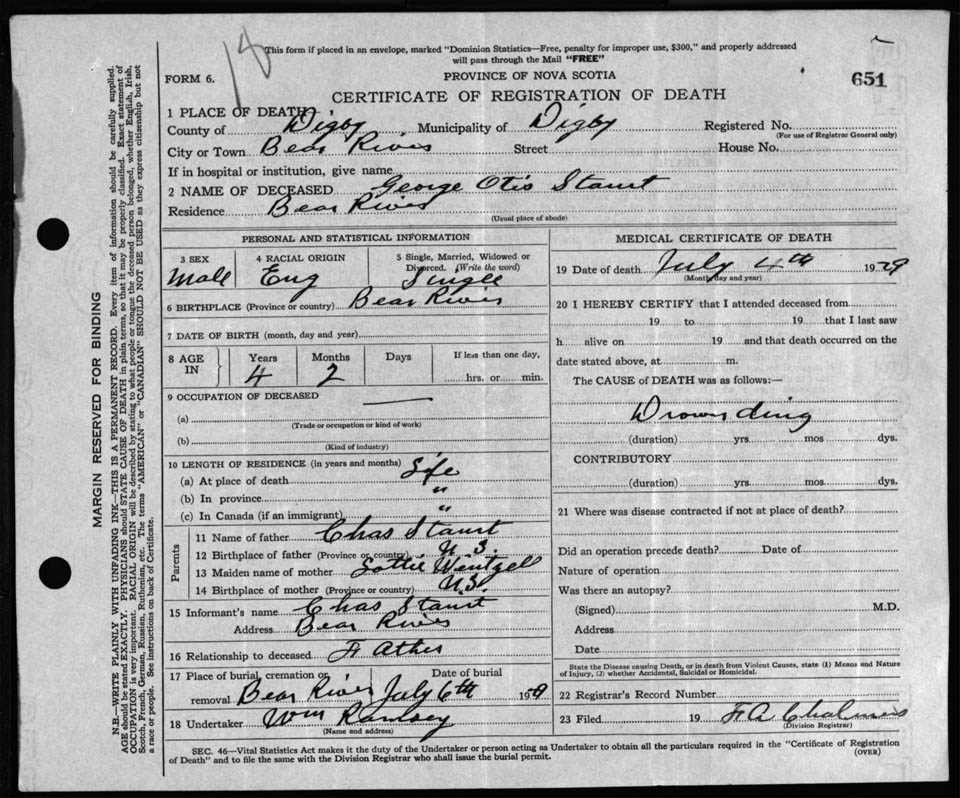 18
This form if placed in an envelope, marked "Dominion Statistics—Free, penalty for improper use, $300," and properly addressed
will pass through the Mail "FREE"
FORM 6.
PROVINCE OF NOVA SCOTIA
651
CERTIFICATE OF REGISTRATION OF DEATH
1 PLACE OF DEATH
County of Digby Municipality of Digby Registered No.
(For use of Registrar General only)
City or Town Bear River Street House No.
If in hospital or institution, give name
2 NAME OF DECEASED George Otis
Residence Bear River
(Usual place of abode)
PERSONAL AND STATISTICAL INFORMATION
3 SEX
Male
4 RACIAL ORIGIN
Eng
5 Single, Married, Widowed or
Divorced. (Write the word)
Single
6 BIRTHPLACE (Province or country) Bear River
7 DATE OF BIRTH (month, day and year)
8 AGE IN
Years Months Days If less than one day,
4 2 hrs. or min.
9 OCCUPATION OF DECEASED
(a)
(Trade or occupation or kind of work)
(b)
(Kind of industry)
10 LENGTH OF RESIDENCE (in years and months) Life
(a) At place of death
(b) In province "
(c) In Canada (if an immigrant) "
Parents
11 Name of father Chas
12 Birthplace of father (Province or country) N.S.
13 Maiden name of mother Lottie Wentzell
14 Birthplace of mother (Province or country) N.S.
15 Informant's name Chas
Address Bear River
16 Relationship to deceased Father
17 Place of burial, cremation or removal Date of burial
Bear River July 6th 19
18 Undertaker Wm Ramsey
(Name and address)
MEDICAL CERTIFICATE OF DEATH
19 Date of death July 4th 1929
(Month, day and year)
20 I HEREBY CERTIFY that I attended deceased from
19 to 19 that I last saw
h alive on 19 and that death occurred on the
date stated above, at m.
The CAUSE of DEATH was as follows:—
Drownding
(duration) yrs. mos. dys.
CONTRIBUTORY
(duration) yrs. mos. dys.
21 Where was disease contracted if not at place of death?
Did an operation precede death? Date of
Nature of operation
Was there an autopsy?
(Signed) M.D.
Address
Date
State the Disease causing Death, or in death from Violent Causes, state (1) Means and Nature
of Injury, (2) whether Accidental, Suicidal or Homicidal.
22 Registrar's Record Number
23 Filed 19 Chalmers
(Division Registrar)
SEC. 46—Vital Statistics Act makes it the duty of the Undertaker or person acting as Undertaker to obtain all the particulars required in the "Certificate of Registration
of Death" and to file the same with the Division Registrar who shall issue the burial permit.
(OVER)
MARGIN RESERVED FOR BINDING
N.B.—WRITE PLAINLY WITH UNFADING INK—THIS IS A PERMANENT RECORD. Every item of information should be carefully supplied.
AGE should be stated EXACTLY. PHYSICIANS should STATE CAUSE OF DEATH in plain terms, so that it may be properly classified. Exact statement of
OCCUPATION is very important. RACIAL ORIGIN will be described by stating to what people or tongue the deceased person belonged, whether English, Irish,
Scotch, French, German, Russian, Ruthenian, etc. The terms "AMERICAN" or "CANADIAN" SHOULD NOT BE USED as they express citizenship but not
a race or people. See instructions on back of Certificate.